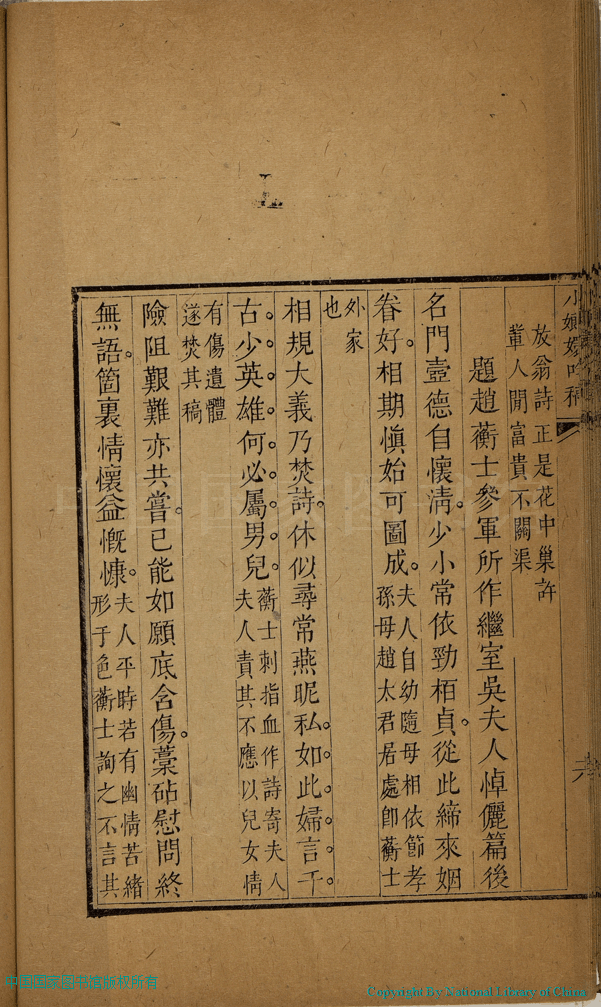 小娘嬛吟稿
放翁詩正是花中巢許
輩人閒富貴不關渠
題趙蘅士參軍所作繼室吳夫人悼儷篇後
名門壼德自懷淸。少小常依勁栢貞。從此締來姻
眷好。相期愼始可圖成。夫人自幼隨母相依節孝
孫母趙太君居處卽蘅士
外家
也
相規大義乃焚詩。休似尋常燕昵私。如此婦言千
古。少英雄何必屬男兒。蘅士刺指血作詩寄夫人
夫人責其不應以兒女情
有傷遺體
遂焚其稿
險阻艱難亦共嘗。已能如願底含傷。藁砧慰問終
無語。箇裏情懷益慨慷。夫人平時若有幽情苦緒
形于色蘅士詢之不言其
六
Copyright By National Library of China